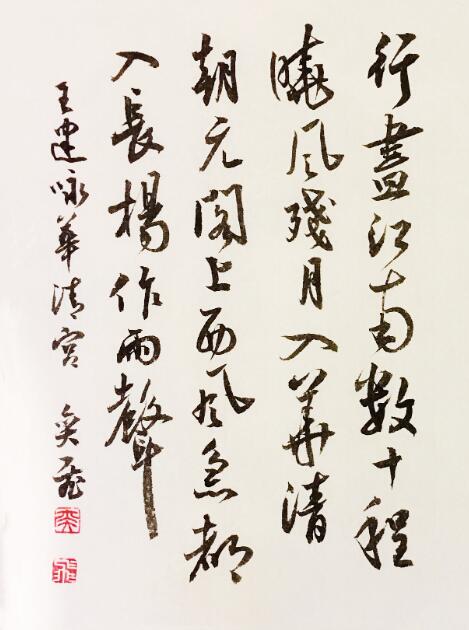 行盡江南數十程
曉風殘月入華清
朝元閣上西風急都
入長楊作雨聲
王建咏華清宮 奕